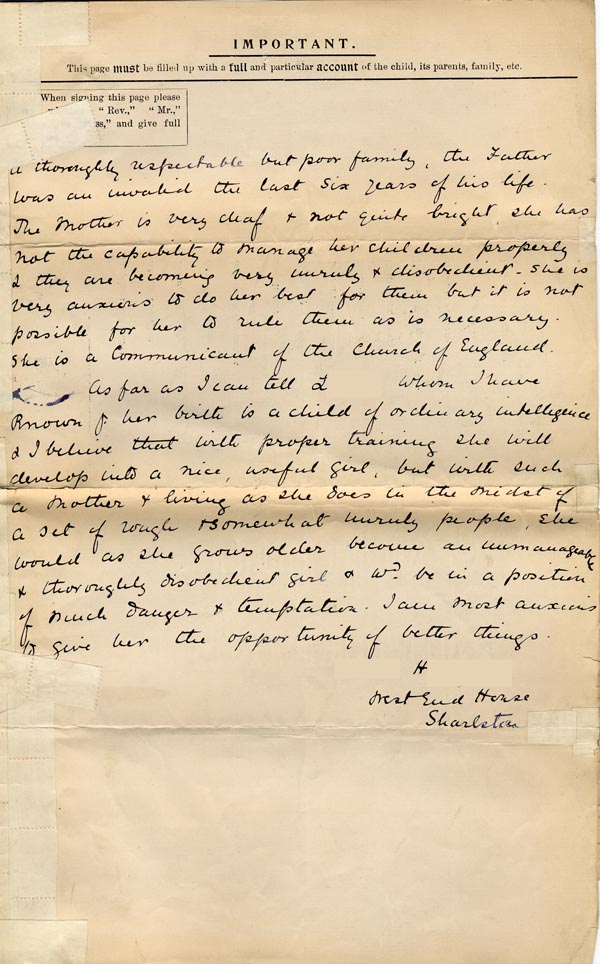 IMPORTANT.
This page must be filled up with a full and particular account of the child, its parents, family, etc.
When signing this page please
"Rev.," "Mr.,"
ss," and give full
a thoroughly respectable but poor family, the Father
was an invalid the last six years of his life.
The Mother is very deaf & not quite bright, she has
not the capability to manage her children properly
& they are becoming very unruly & disobedient - she is
very anxious to do her best for them but it is not
possible for her to rule them as is necessary.
She is a Communicant of the Church of England.
As far as I can tell L whom I have
known fr her birth is a child of ordinary intelligence
& I believe that with proper training she will
develop into a nice, useful girl, but with such
a Mother & living as she does in the midst of
a set of rough & somewhat unruly people, she
would as she grows older become an unmanageable
& thoroughly disobedient girl & wd. be in a position
of much danger & temptation. I am most anxious
to give her the opportunity of better things.
H
West End House
Sharlston